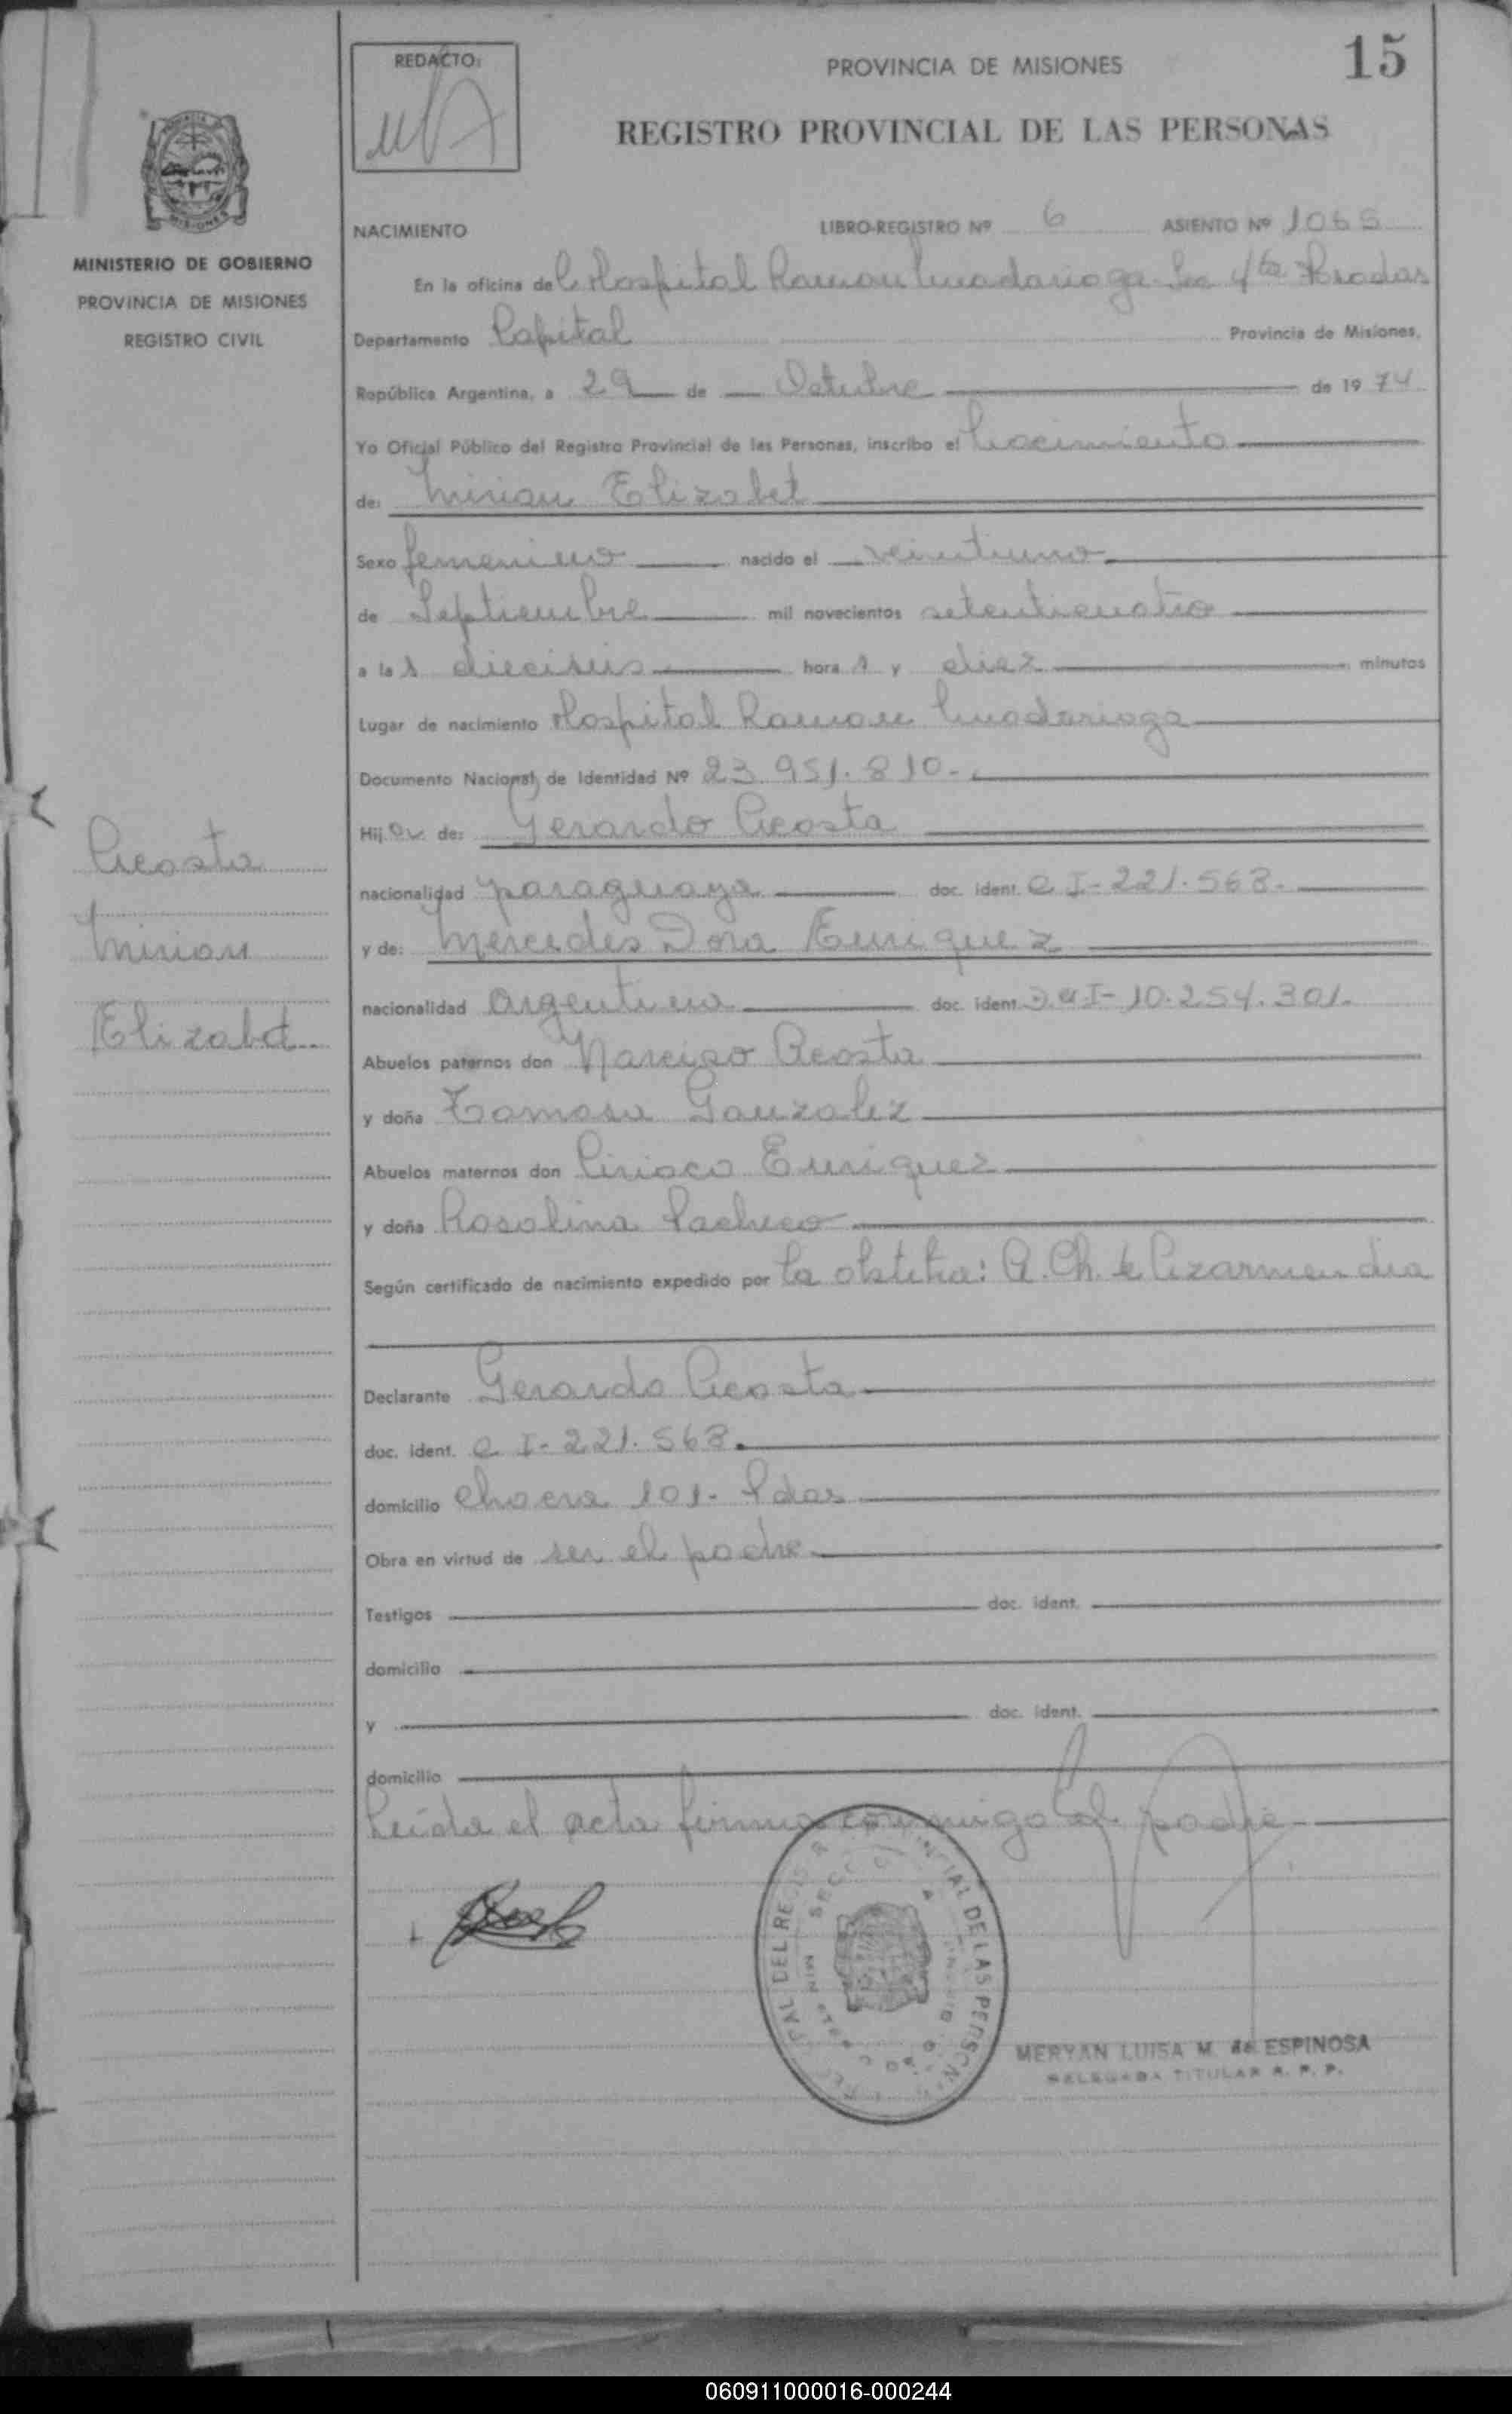 15
REDACTO:
PROVINCIA DE MISIONES
REGISTRO PROVINCIAL DE LAS PERSONAS
MISIONES
MINISTERIO DE GOBIERNO
PROVINCIA DE MISIONES
REGISTRO CIVIL
Acosta
Mirian
Elizabet
NACIMIENTO LIBRO-REGISTRO Nº 6 ASIENTO Nº
En la oficina del Hospital Ramon Madariaga Sec 4ta Posadas
Departamento Capital Provincia de Misiones,
República Argentina, a 29 de Octubre de 19 74
Yo Oficial Público del Registro Provincial de las Personas, inscribo el Nacimiento
de: Mirian Elizabet
Sexo femenino nacido el veintiuno
de Septiembre mil novecientos setenticuatro
a las dieciseis horas y diez minutos
Lugar de nacimiento Hospital Ramon Madariaga
Documento Nacional de Identidad Nº 23.951.810.-
Hija de: Gerardo Acosta
nacionalidad paraguaya doc. ident. C I- 221.568.
y de: Mercedes Dora Enriquez
nacionalidad Argentina doc. ident. D.N.I- 10.254.301.
Abuelos paternos don Narciso Acosta
y doña Tomasa Gonzalez
Abuelos maternos don Ciriaco Enriquez
y doña Rosalina Pacheco
Según certificado de nacimiento expedido por la obstetra: A. Ch. de Azarmendia
Declarante Gerardo Acosta
doc. ident. C I- 221.568.
domicilio Chacra 101- Pdas
Obra en virtud de ser el padre
Testigos doc. ident.
domicilio
y doc. ident.
domicilio
Leída el acta firma conmigo el padre
DEL REGIS PROVINCIAL DE LAS PERSONAS
MERYAN LUISA M. de ESPINOSA
DELEGADA TITULAR R. P. P.
060911000016-000244